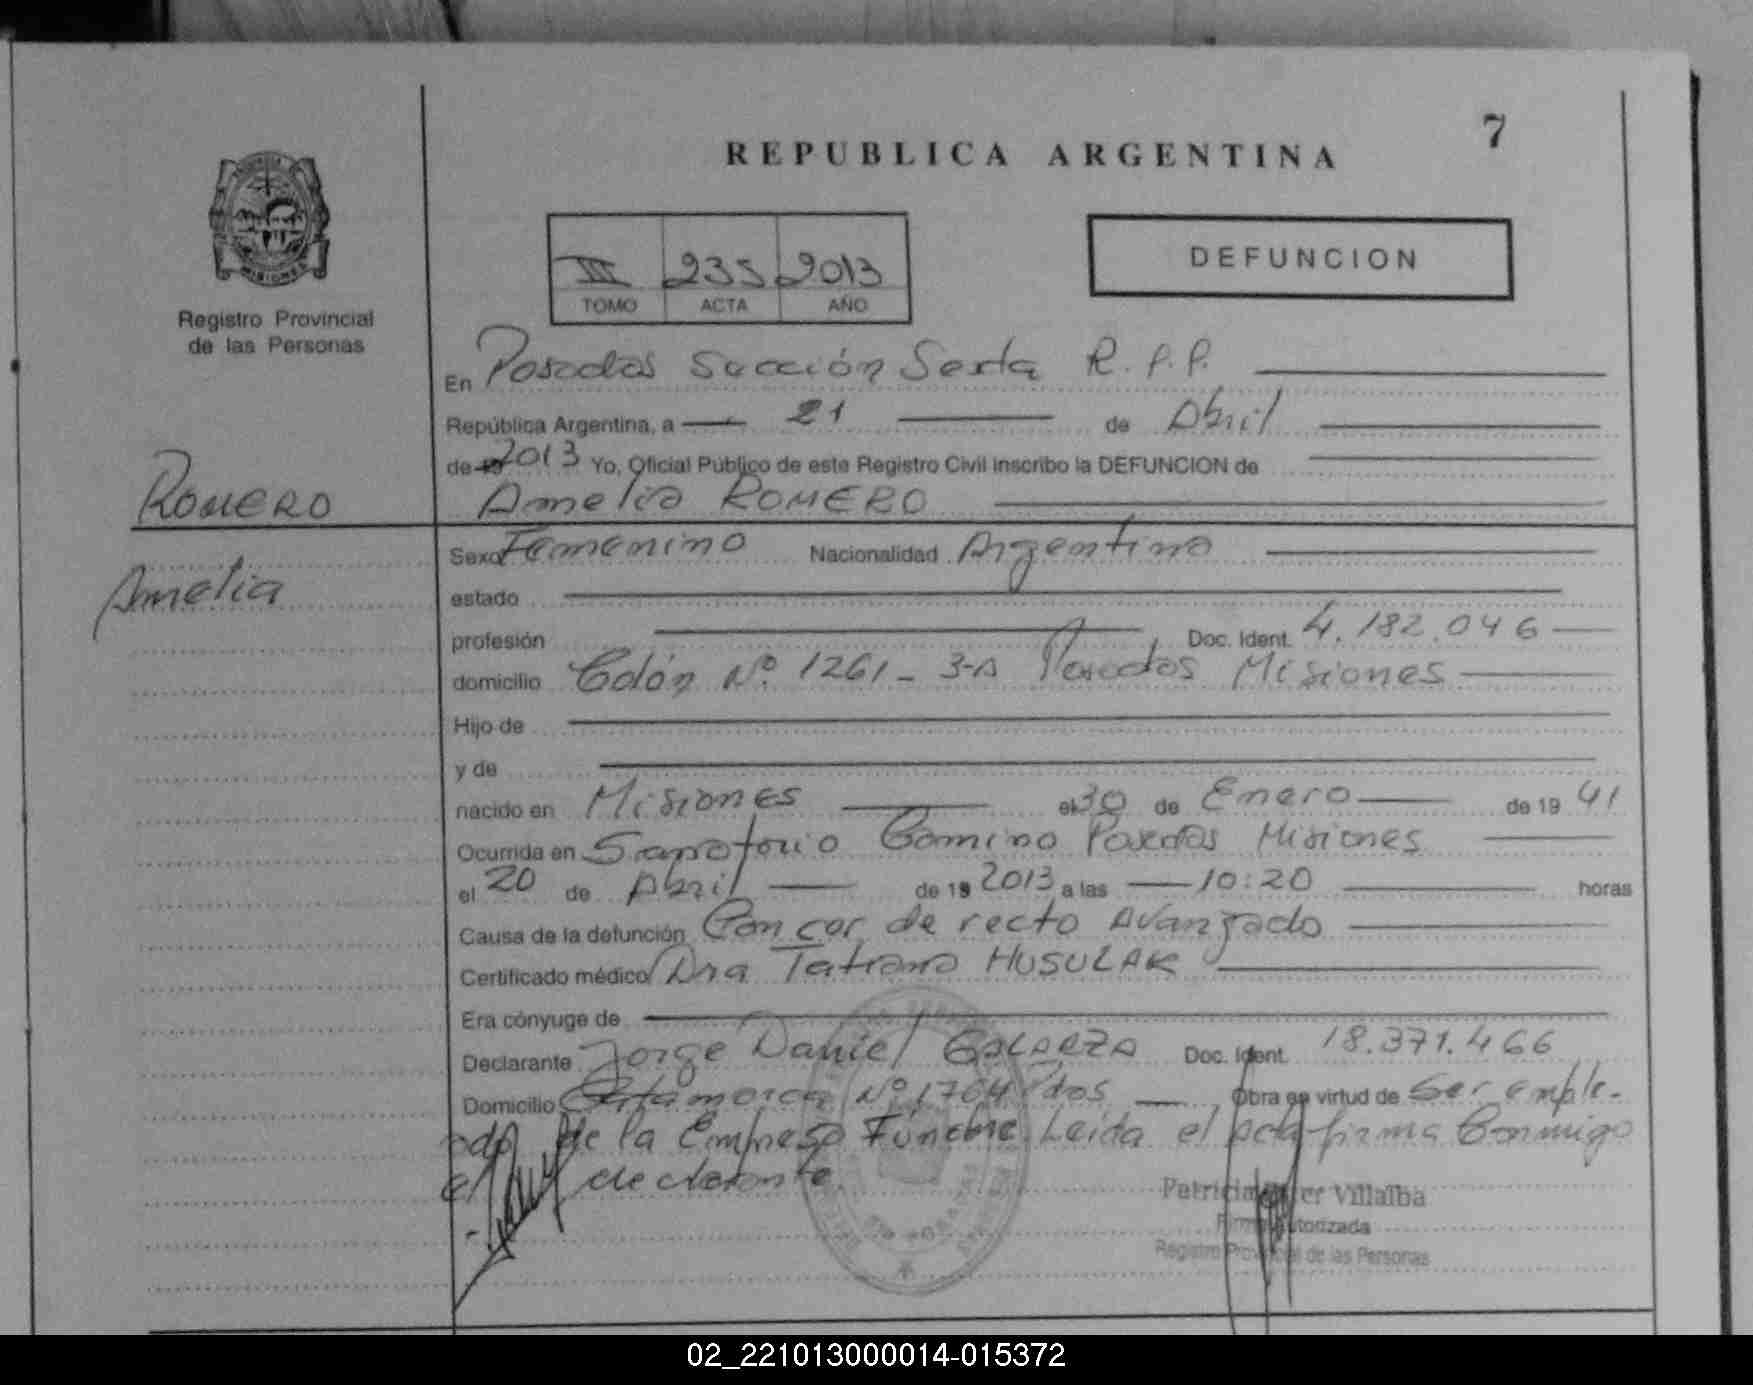 7
REPUBLICA ARGENTINA
MISIONES
Registro Provincial
de las Personas
III 235 2013
TOMO ACTA AÑO
DEFUNCION
En Posadas Sección Sexta R.P.P.
República Argentina, a 21 de Abril
de 2013 Yo, Oficial Público de este Registro Civil inscribo la DEFUNCION de
ROMERO
Amelia ROMERO
Amelia
Sexo Femenino Nacionalidad Argentina
estado
profesión Doc. Ident. 4.182.046
domicilio Colón Nº 1261 - 3-A Posadas Misiones
Hijo de
y de
nacido en Misiones el 30 de Enero de 19 41
Ocurrida en Sanatorio Camino Posadas Misiones
el 20 de Abril de 19 2013 a las 10:20 horas
Causa de la defunción Cancer de recto Avanzado
Certificado médico Dra Tatiana HUSULAK
Era cónyuge de
Declarante Jorge Daniel GALARZA Doc. Ident. 18.371.466
Domicilio Catamarca Nº 1764 Pdos Obra en virtud de Ser emple-
ado de la Empresa Fúnebre. Leida el acta firma Conmigo
el declarante.
Villalba
Firma Autorizada
Registro Provincial de las Personas
02_221013000014-015372